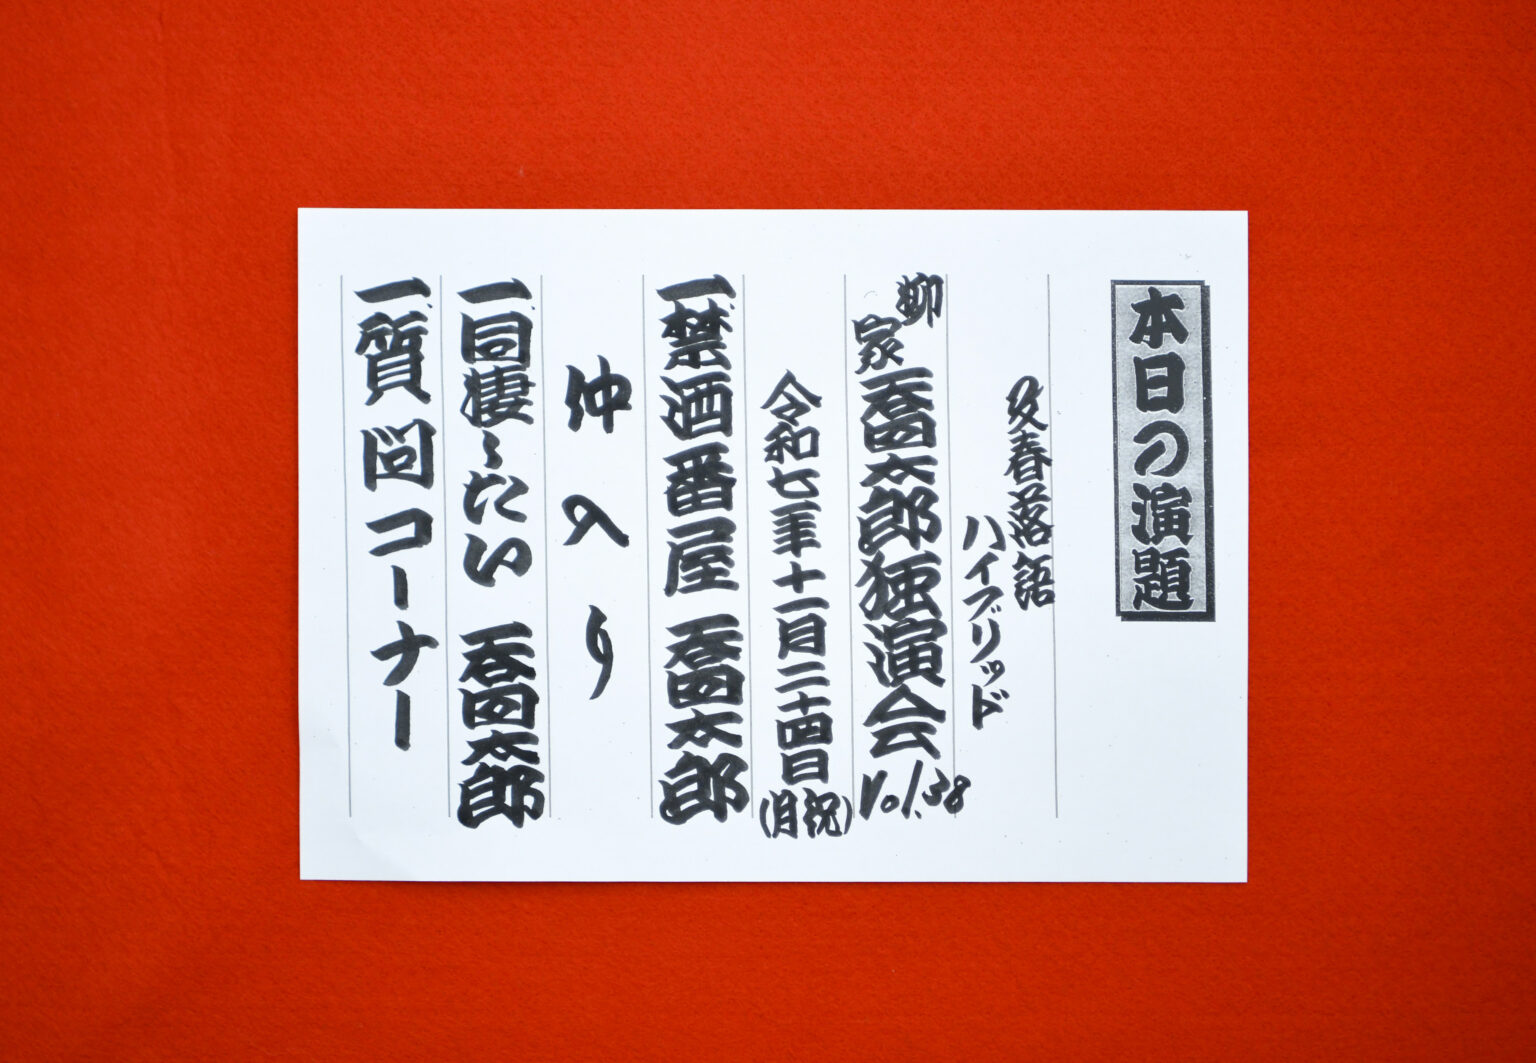 本日の演題
文春落語
ハイブリッド
柳家吞四太郎独演会 Vol.38
令和七年十一月二十四日(月祝)
一、禁酒番屋 吞四太郎
仲入り
一、同棲したい 吞四太郎
一、質問コーナー